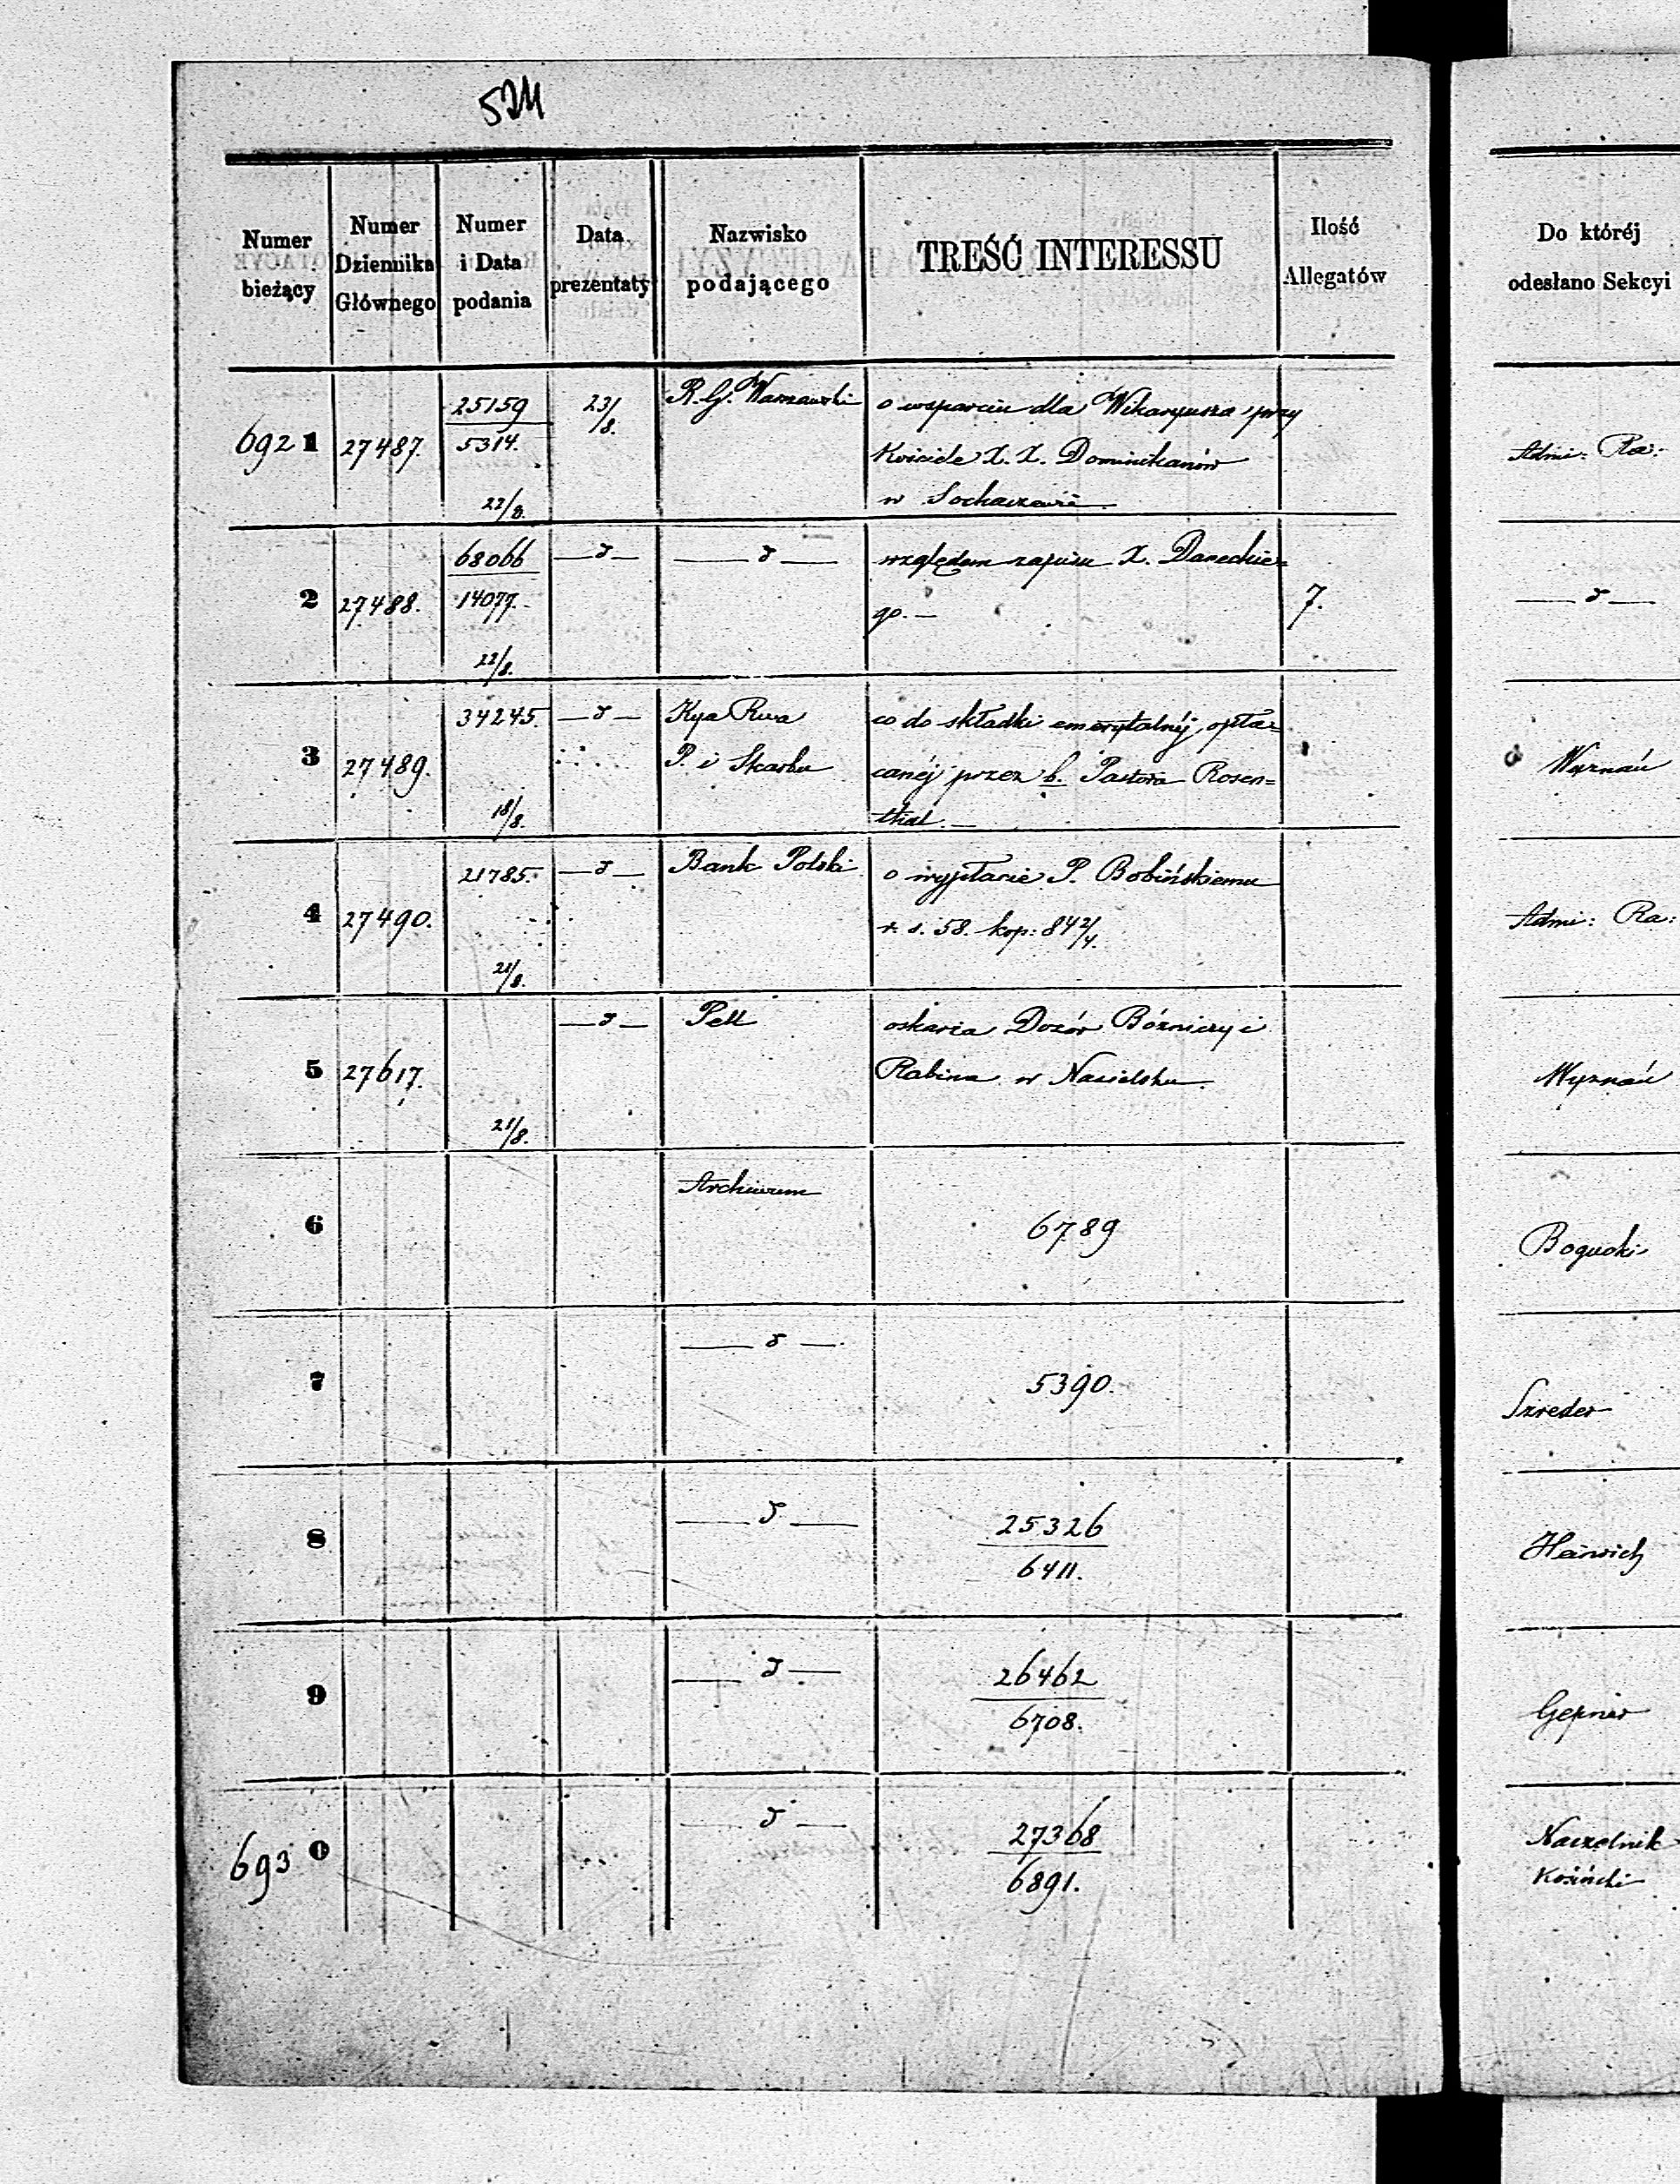 524
Numer bieżący
Numer Dziennika Głównego
Numer i Data podania
Data prezentaty
Nazwisko podającego
TREŚĆ INTERESSU
Ilość Allegatów
Do któréj odesłano Sekcyi
6921 27487. 25159/5314. 22/8. 23/8. R. G. Warszawski o wsparciu dla Wikaryusza przy
Kościele X. X. Dominikanów
w Sochaczewie. Admi: Ra:
2 27488. 68066/14077. 22/8. —d— —d— względem zapisu X. Dareckie=
go. — 7. —d—
3 27489. 34245. 18/8. —d— Kya Rwa
P. i Skarbu
co do składki emerytalnéj, opła=
canéj przez b. Pastora Rosen=
thal. — Wyznań
4 27490. 21785. 21/8. —d— Bank Polski o wypłacie P. Bobińskiemu
r. s. 58. kop: 84 2/4. Admi: Ra:
5 27617. 21/8. —d— Pell oskarża Dozór Bóżniczy i
Rabina w Nasielsku. Wyznań
6 Archiwum 6789 Bogucki
7 —d— 5390. Szreder
8 —d— 25326/6411. Heinrich
9 —d— 26462/6708. Gepner
6930 —d— 27368/6891. Naczelnik
Kosiński